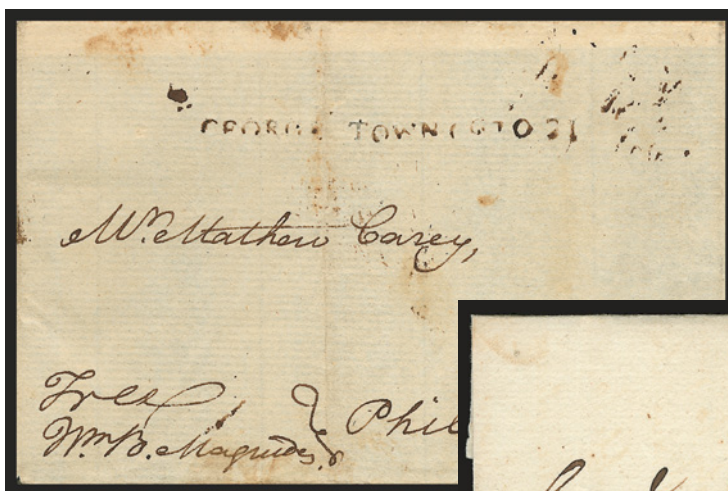 GEORGE TOWN
Mr. Mathew Carey,
Free
Wm. B. Magruder
Phil